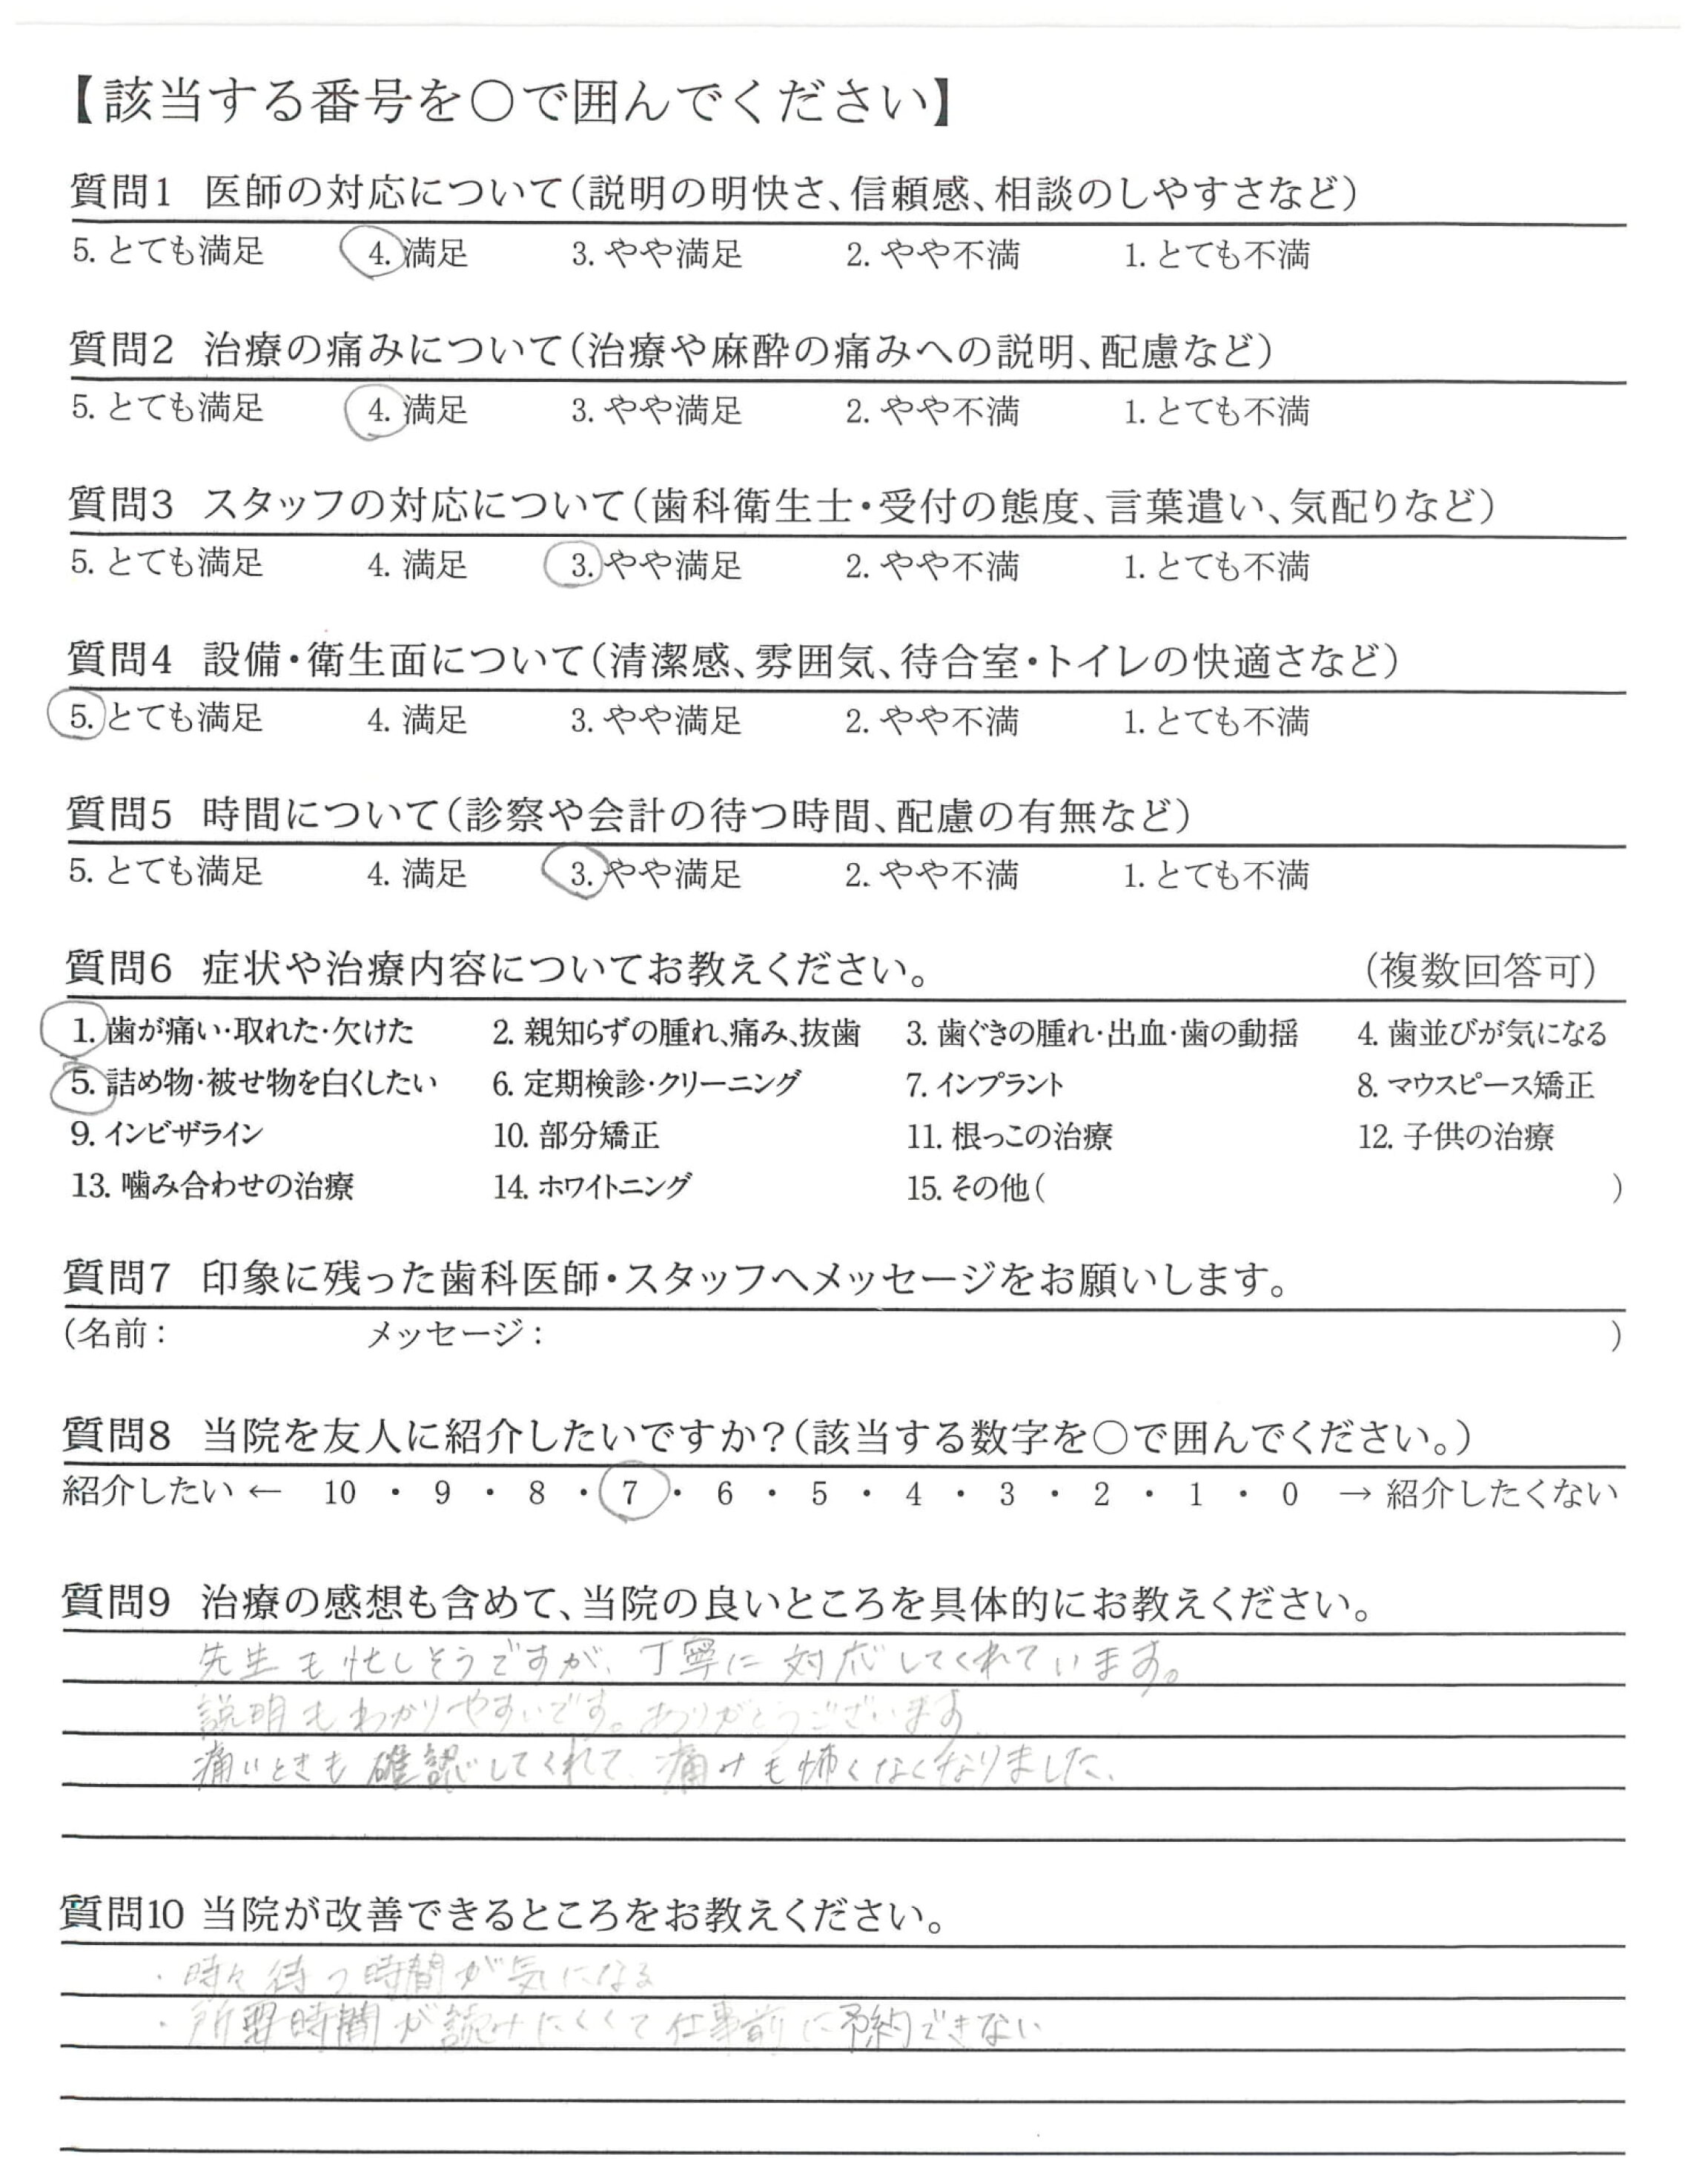 【該当する番号を○で囲んでください】
質問1 医師の対応について(説明の明快さ、信頼感、相談のしやすさなど)
5. とても満足 4. 満足 3. やや満足 2. やや不満 1. とても不満
質問2 治療の痛みについて(治療や麻酔の痛みへの説明、配慮など)
5. とても満足 4. 満足 3. やや満足 2. やや不満 1. とても不満
質問3 スタッフの対応について(歯科衛生士・受付の態度、言葉遣い、気配りなど)
5. とても満足 4. 満足 3. やや満足 2. やや不満 1. とても不満
質問4 設備・衛生面について(清潔感、雰囲気、待合室・トイレの快適さなど)
5. とても満足 4. 満足 3. やや満足 2. やや不満 1. とても不満
質問5 時間について(診察や会計の待つ時間、配慮の有無など)
5. とても満足 4. 満足 3. やや満足 2. やや不満 1. とても不満
質問6 症状や治療内容についてお教えください。 (複数回答可)
1. 歯が痛い・取れた・欠けた 2. 親知らずの腫れ、痛み、抜歯 3. 歯ぐきの腫れ・出血・歯の動揺 4. 歯並びが気になる
5. 詰め物・被せ物を白くしたい 6. 定期検診・クリーニング 7. インプラント 8. マウスピース矯正
9. インビザライン 10. 部分矯正 11. 根っこの治療 12. 子供の治療
13. 噛み合わせの治療 14. ホワイトニング 15. その他( )
質問7 印象に残った歯科医師・スタッフへメッセージをお願いします。
(名前: メッセージ: )
質問8 当院を友人に紹介したいですか?(該当する数字を○で囲んでください。)
紹介したい ← 10 ・ 9 ・ 8 ・ 7 ・ 6 ・ 5 ・ 4 ・ 3 ・ 2 ・ 1 ・ 0 → 紹介したくない
質問9 治療の感想も含めて、当院の良いところを具体的にお教えください。
先生も忙しそうですが、丁寧に対応してくれています。
説明もわかりやすいです。ありがとうございます
痛いときも確認してくれて、痛みも怖くなくなりました、
質問10 当院が改善できるところをお教えください。
・時々待つ時間が気になる
・所要時間が読みにくくて仕事前に予約できない